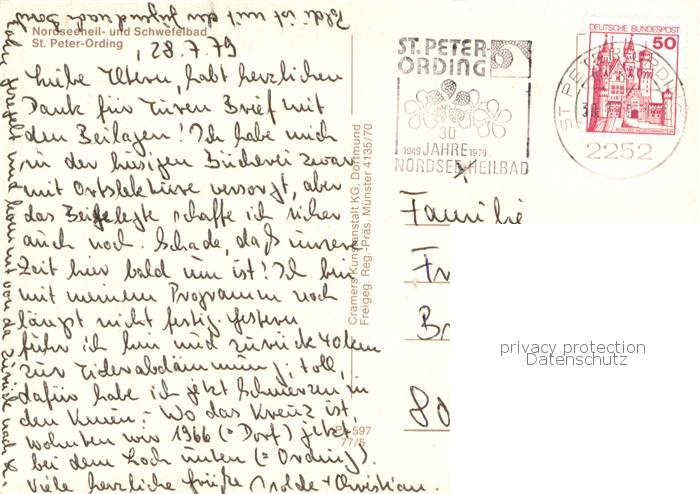 Nordseeheil- und Schwefelbad
St. Peter-Ording
, 28.7.79
Liebe Eltern, habt herzlichen
Dank für Euren Brief mit
den Beilagen! Ich habe mich
in der hiesigen Bücherei zwar
mit Ortslektüre versorgt, aber
das Beigelegte schaffe ich sicher
auch noch. Schade, daß unsere
Zeit hier bald um ist! Ich bin
mit meinem Programm noch
längst nicht fertig. Gestern
fuhr ich hin und zurück 40 km
zur Eiderabdämmung, toll,
dafür habe ich jetzt Schmerzen in
den Knien. - Wo das Kreuz ist,
wohnten wir 1966 (= Dorf) jetzt
bei dem Loch unten (= Ording).
Viele herzliche Grüße Isolde + Christian.
Poldi ist mit der Jugend nach
gesegelt und kommt von da zurück nach
Cramers Kunstanstalt KG, Dortmund
Freigeg. Reg.-Präs. Münster 4135/70
597
77/5
ST. PETER-
ORDING
30
1949 JAHRE 1979
NORDSEEHEILBAD
DEUTSCHE BUNDESPOST
50
ST PETER-ORDING
2252
Familie
Fr
Br
80
privacy protection
Datenschutz